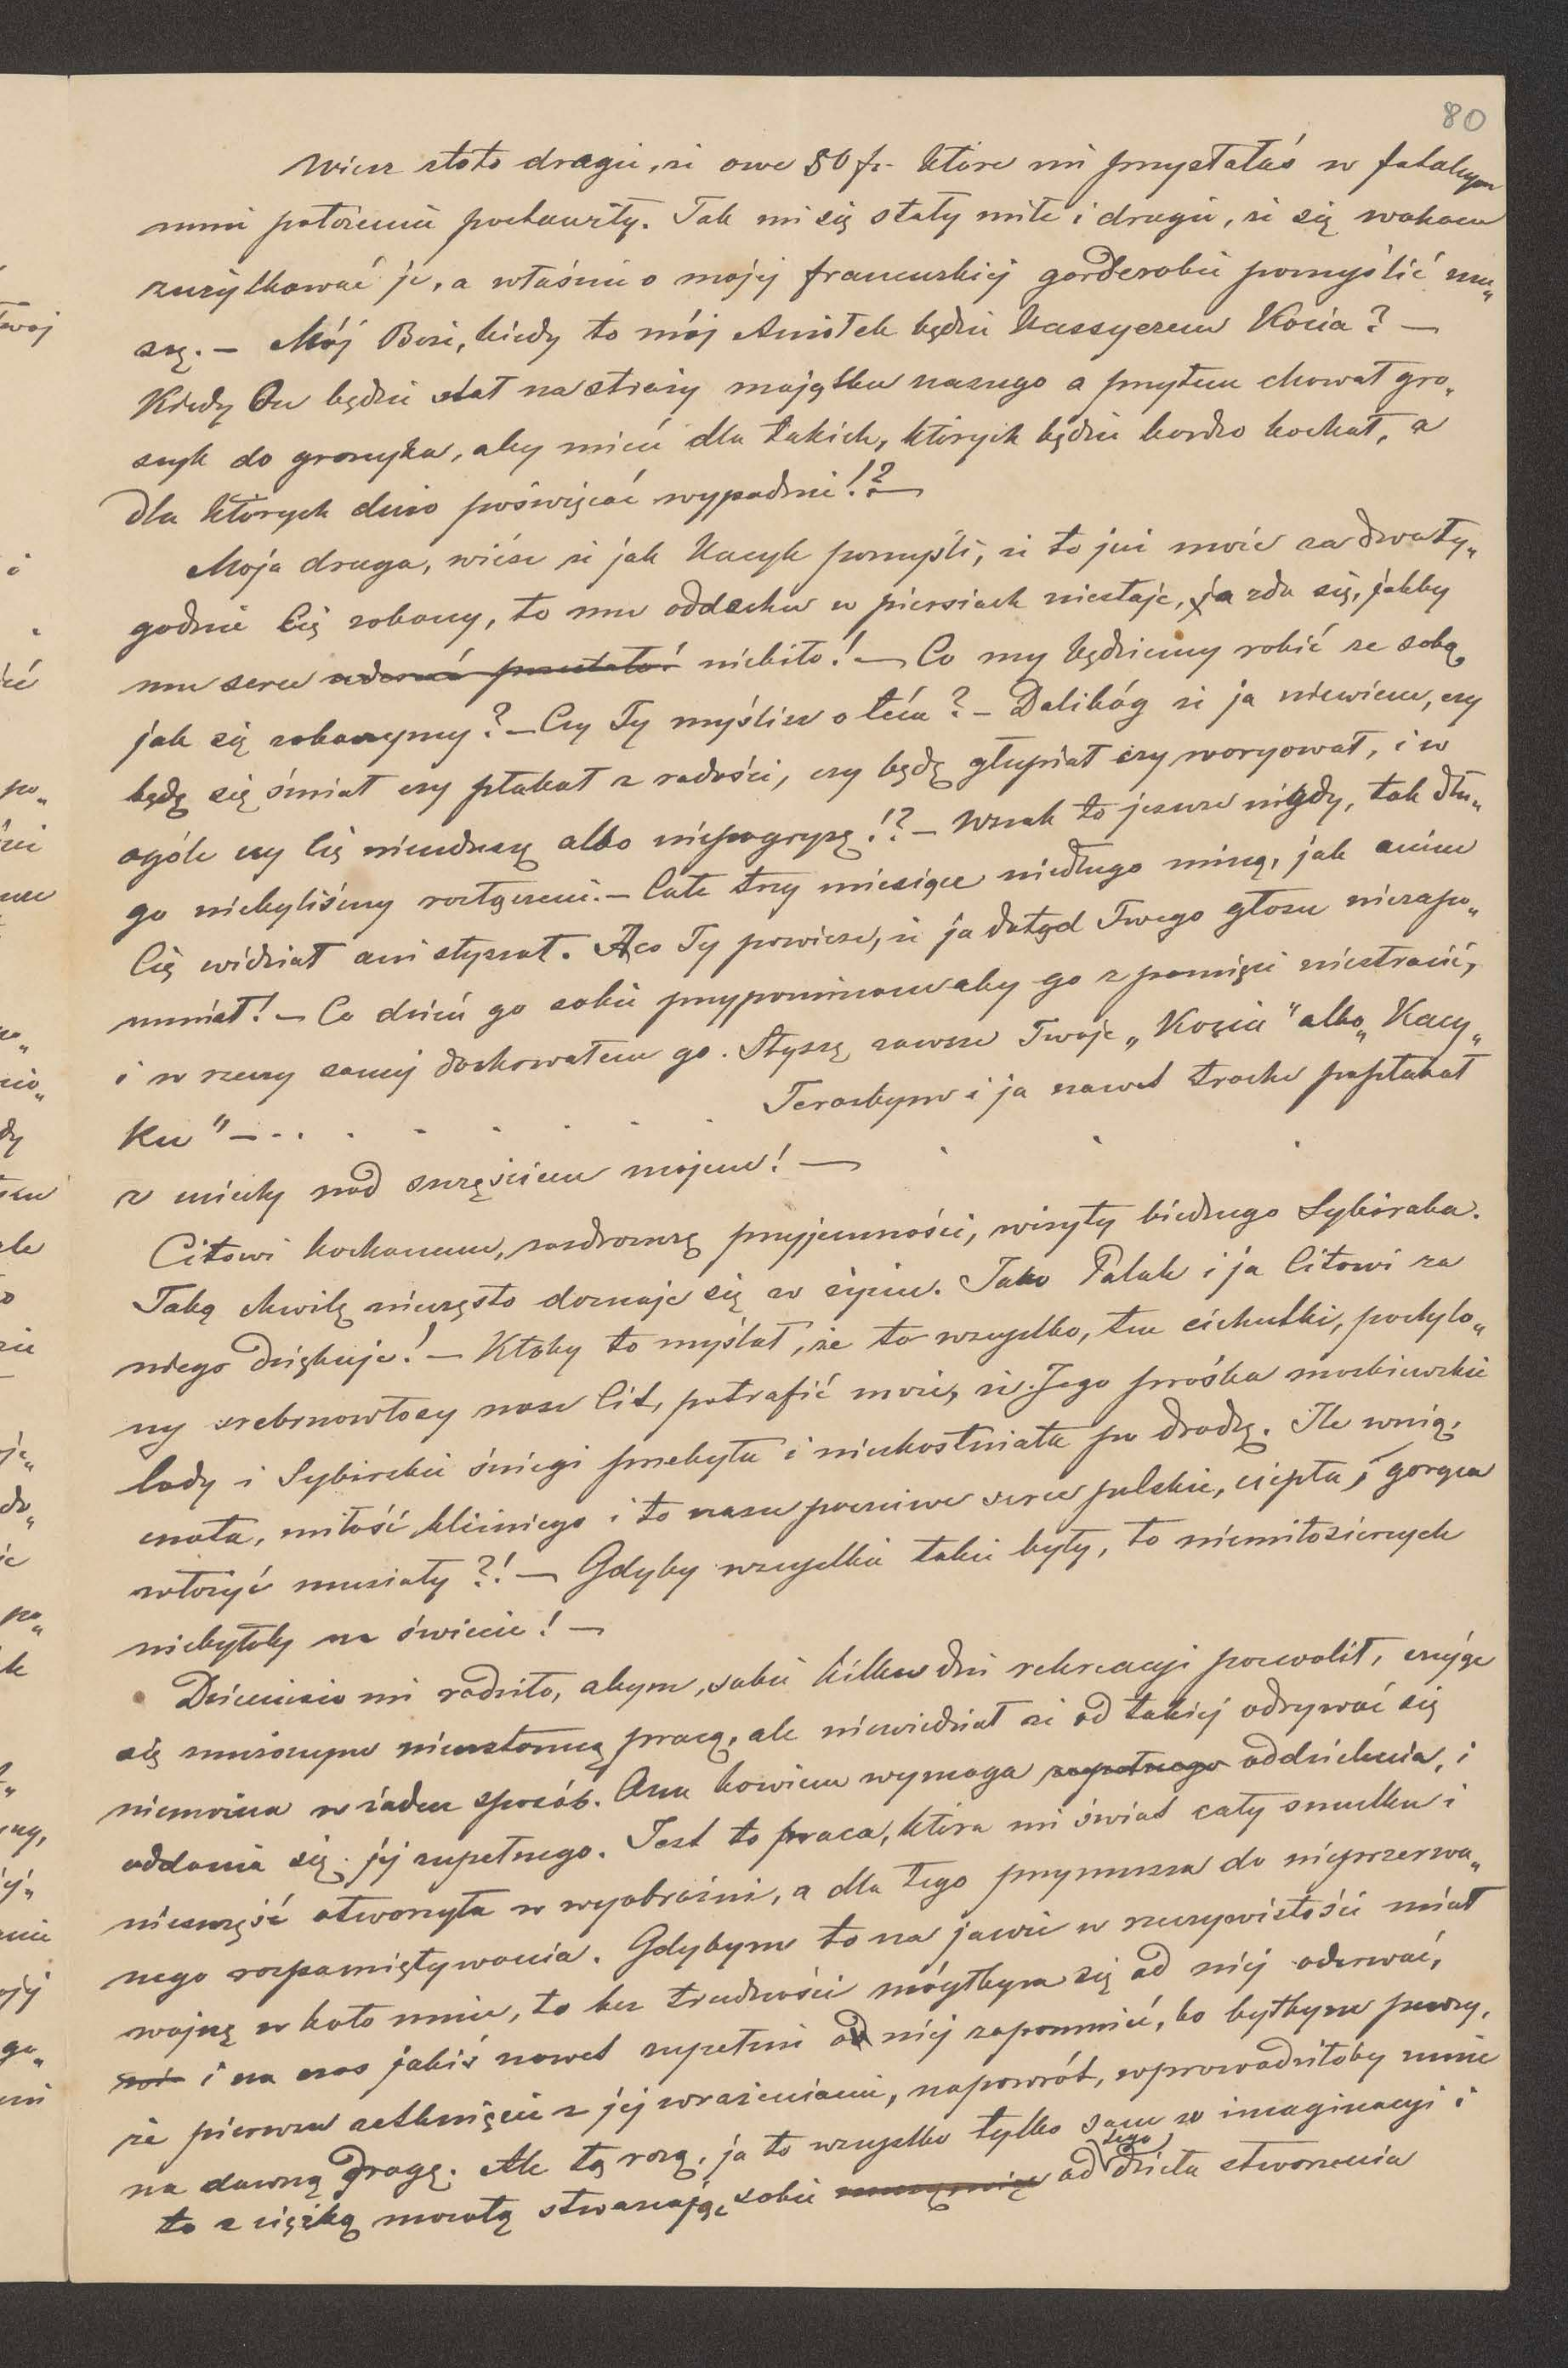 80
Wiesz złoto drogie, że owe 50 fr. które mi przysłałaś w fatalnym
mnie położeniu postawiły. Tak mi się stały miłe i drogie, że się waham
zużytkować je, a właśnie o mojej francuskiej garderobie pomyśleć mu„
szę. — Mój Boże, kiedy to mój Aniołek będzie Kassyerem Kocia? —
Kiedy On będzie stał na straży majątku naszego a przytem chował gro„
szyk do groszyka, aby mieć dla takich, których będzie bardzo kochał, a
dla których dużo poświęcać wypadnie!? —
Moja droga, wiész że jak Kacyk pomyśli, że to już może za dwa ty„
godnie Cię zobaczy, to mu oddechu w piersiach niestaje, ja zda się, jakby
mu serce niebiło! — Co my będziemy robić ze sobą,
jak się zobaczymy? — Czy Ty myślisz o tém? — Dalibóg że ja niewiem, czy
będę się śmiał czy płakał z radości, czy będę głupiał czy waryował, i w
ogóle czy Cię nieuduszę albo niepogryzę!? — Wszak to jeszcze nigdy, tak dłu„
go niebyliśmy rozłączeni. — Całe trzy miesiące niedługo miną, jak anim
Cię widział ani słyszał. A co Ty powiesz, że ja dotąd Twego głosu niezapo„
mniał! — Co dzień go sobie przypominam aby go z pamięci niestracić,
i w rzeczy samej dochowałem go. Słyszę zawsze Twoje „Kociu" albo „Kacy„
ku" — . . . . . . . . . Terazbym i ja nawet trochę popłakał
z uciechy nad szczęściem mojem! —
Citowi kochanemu, zazdroszczę przyjemności, wizyty biednego Sybiraka.
Taką chwilę nieczęsto doznaje się w życiu. Jako Polak i ja Citowi za
niego dziękuję! — Ktoby to myślał, że to wszystko, ten cichutki, pochylo„
ny srebrnowłosy nasz Cit, potrafić może, że Jego prośba moskiewskie
lody i Sybirskie śniegi przebyła i nieskostniała po drodze. Ile w nią,
cnota, miłość bliźniego i to nasze poczciwe serce polskie, ciepła i gorąca
włożyć musiały?! — Gdyby wszystkie takie były, to niemiłosiernych
niebyłoby na świecie! —
Dzieciusio mi radziło, abym, sobie kilka dni rekreacyi pozwolił, czując
się zmęczonym nieustanną pracą, ale niewiedział że od takiej odrywać się
niemożna w żaden sposób. Ona bowiem wymaga zupełnego oddzielenia, i
oddania się jej zupełnego. Jest to praca, która mi świat cały smutku i
nieszczęść otworzyła w wyobraźni, a dla tego przymusza do nieprzerwa„
nego rozpamiętywania. Gdybym to na jawie w rzeczywistości miał
wojnę w koło mnie, to bez trudności mógłbym się od niej oderwać,
i na czas jakiś nawet zupełnie o niej zapomnieć, bo byłbym pewny,
że pierwsze zetknięcie z jej wrażeniami, napowrót, wprowadziłoby mnie
na dawną drogę. Ale tą razą, ja to wszystko tylko sam w imaginacyi i
to z ciężką mozołą stwarzając sobie od tego dzieła stworzenia